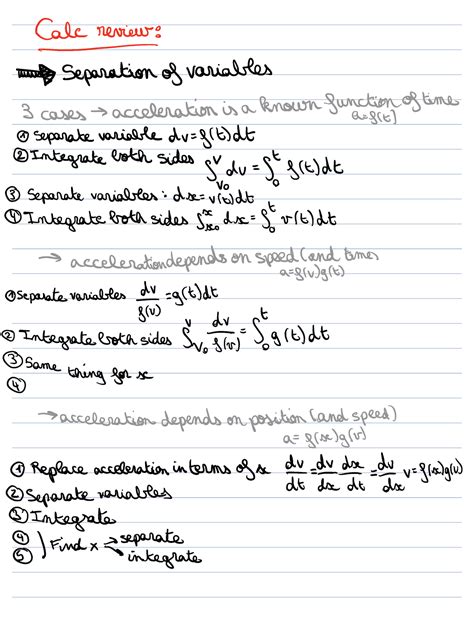 Calc review:
→ Separation of variables
3 cases → acceleration is a known function of time
a=f(t)
① Separate variable dv=f(t)dt
② Integrate both sides ∫_{v₀}^{v} dv = ∫_{0}^{t} f(t)dt
③ Separate variables: dx=v(t)dt
④ Integrate both sides ∫_{x₀}^{x} dx = ∫_{0}^{t} v(t)dt
→ acceleration depends on speed (and time)
a=f(v)g(t)
① Separate variables dv/f(v) = g(t)dt
② Integrate both sides ∫_{v₀}^{v} dv/f(v) = ∫_{0}^{t} g(t)dt
③ Same thing for x
④
→ acceleration depends on position (and speed)
a = f(x)g(v)
① Replace acceleration in terms of x dv/dt = dv/dx dx/dt = dv/dx v = f(x)g(v)
② Separate variables
③ Integrate
④ ⑤ ) Find x → separate
→ integrate